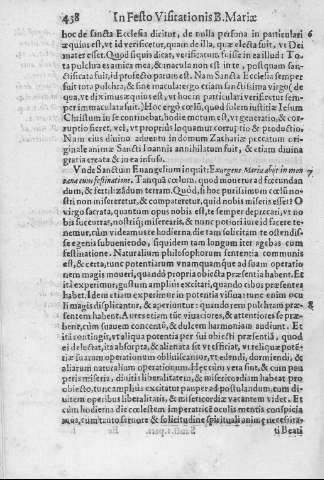 438 In Festo Visitationis B. Mariæ
hoc de sancta Ecclesia dicitur, de nulla persona in particulari 6
æquius est, vt id verificetur, quam de illa, quæ electa fuit, vt Dei
mater esset. Quod si quis dicat, verissimam fuisse in ea illud: To
ta pulchra es amica mea, & macula non est in te, postquam san-
ctificata fuit, id profecto parum est. Nam Sancta Ecclesia semper
fuit tota pulchra, & sine macula: ergo etiam sanctissima virgo (de
qua, vt diximus æquius est, vt hoc in particulari verificetur) sem-
per immaculata fuit. Hoc ergo cœlũ, quod solem iustitiæ Iesum
Christum in se continebat, hodie motum est, vt generatio, & cor-
ruptio fieret, vel, vt proprius loquamur corruptio & productio.
Nam eius diuino aduentu in domum Zachariæ peccatum ori-
ginale animæ Sancti Ioannis annihilatum fuit, & etiam diuina
gratia creata & in ea infusa.
Vnde Sanctum Euangelium inquit: Exurgens Maria abijt in mon 7
tana cum festinatione. Tanquã cœlum, quod mouetur ad fœcundan
dum, & fertilizãdum terram. Quòd, si hoc purissimum cœlũ no-
stri non misereretur, & compateretur, quid nobis miseris esset? O
virgo sacrata, quantum opus nobis est, te semper deprecari, vt no
bis succurras, nostriq; miserearis, & nunc potiori iure id facere te-
nemur, cùm videamus te hodierna die tam solicitam te ostendis-
se egenis subueniendo, siquidem tam longum iter agebas cum
festinatione. Naturalium philosophorum sententia communis
est, & certa, tunc potentiarum vnamquamque ad suam operatio
nem magis moueri, quandò propria obiecta præsentia habent. Et
ità experimur, gustum ampliùs excitari, quando cibos præsentes
habet. Idem etiam experimur in potentia visiua: tunc enim ocu
li magis displicantur, & aperiuntur: quando rem pulchram præ- 8
sentem habent. Aures etiam tũc viuaciores, & attentiores se præ-
bent, cùm suauem concentũ, & dulcem harmoniam audiunt. Et
ità contingit, vt aliqua potentia per sui obiecti præsentiã, quod
ei delectat, ità absurpta, & alienata ab vsu fiat, vt reliquæ potẽ-
tiæ suarum operationum obliuiscantur, vt edendi, dormiendi, &
aliarum naturalium operationum. Hęc cùm vera sint, & cùm pau
peris miseria, diuitis liberalitatem, & misericordiam habeat pro
obiecto, tunc amplius excitatur pauper ad postulandum, cum di-
uitem operibus liberalitatis, & misericordiæ vacantem videt. Et
cùm hodierna die cœlestem imperatricē oculis mentis conspicia
mus, cum tanto feruore & solicitudine spirituali animę necessita-
ti Beati